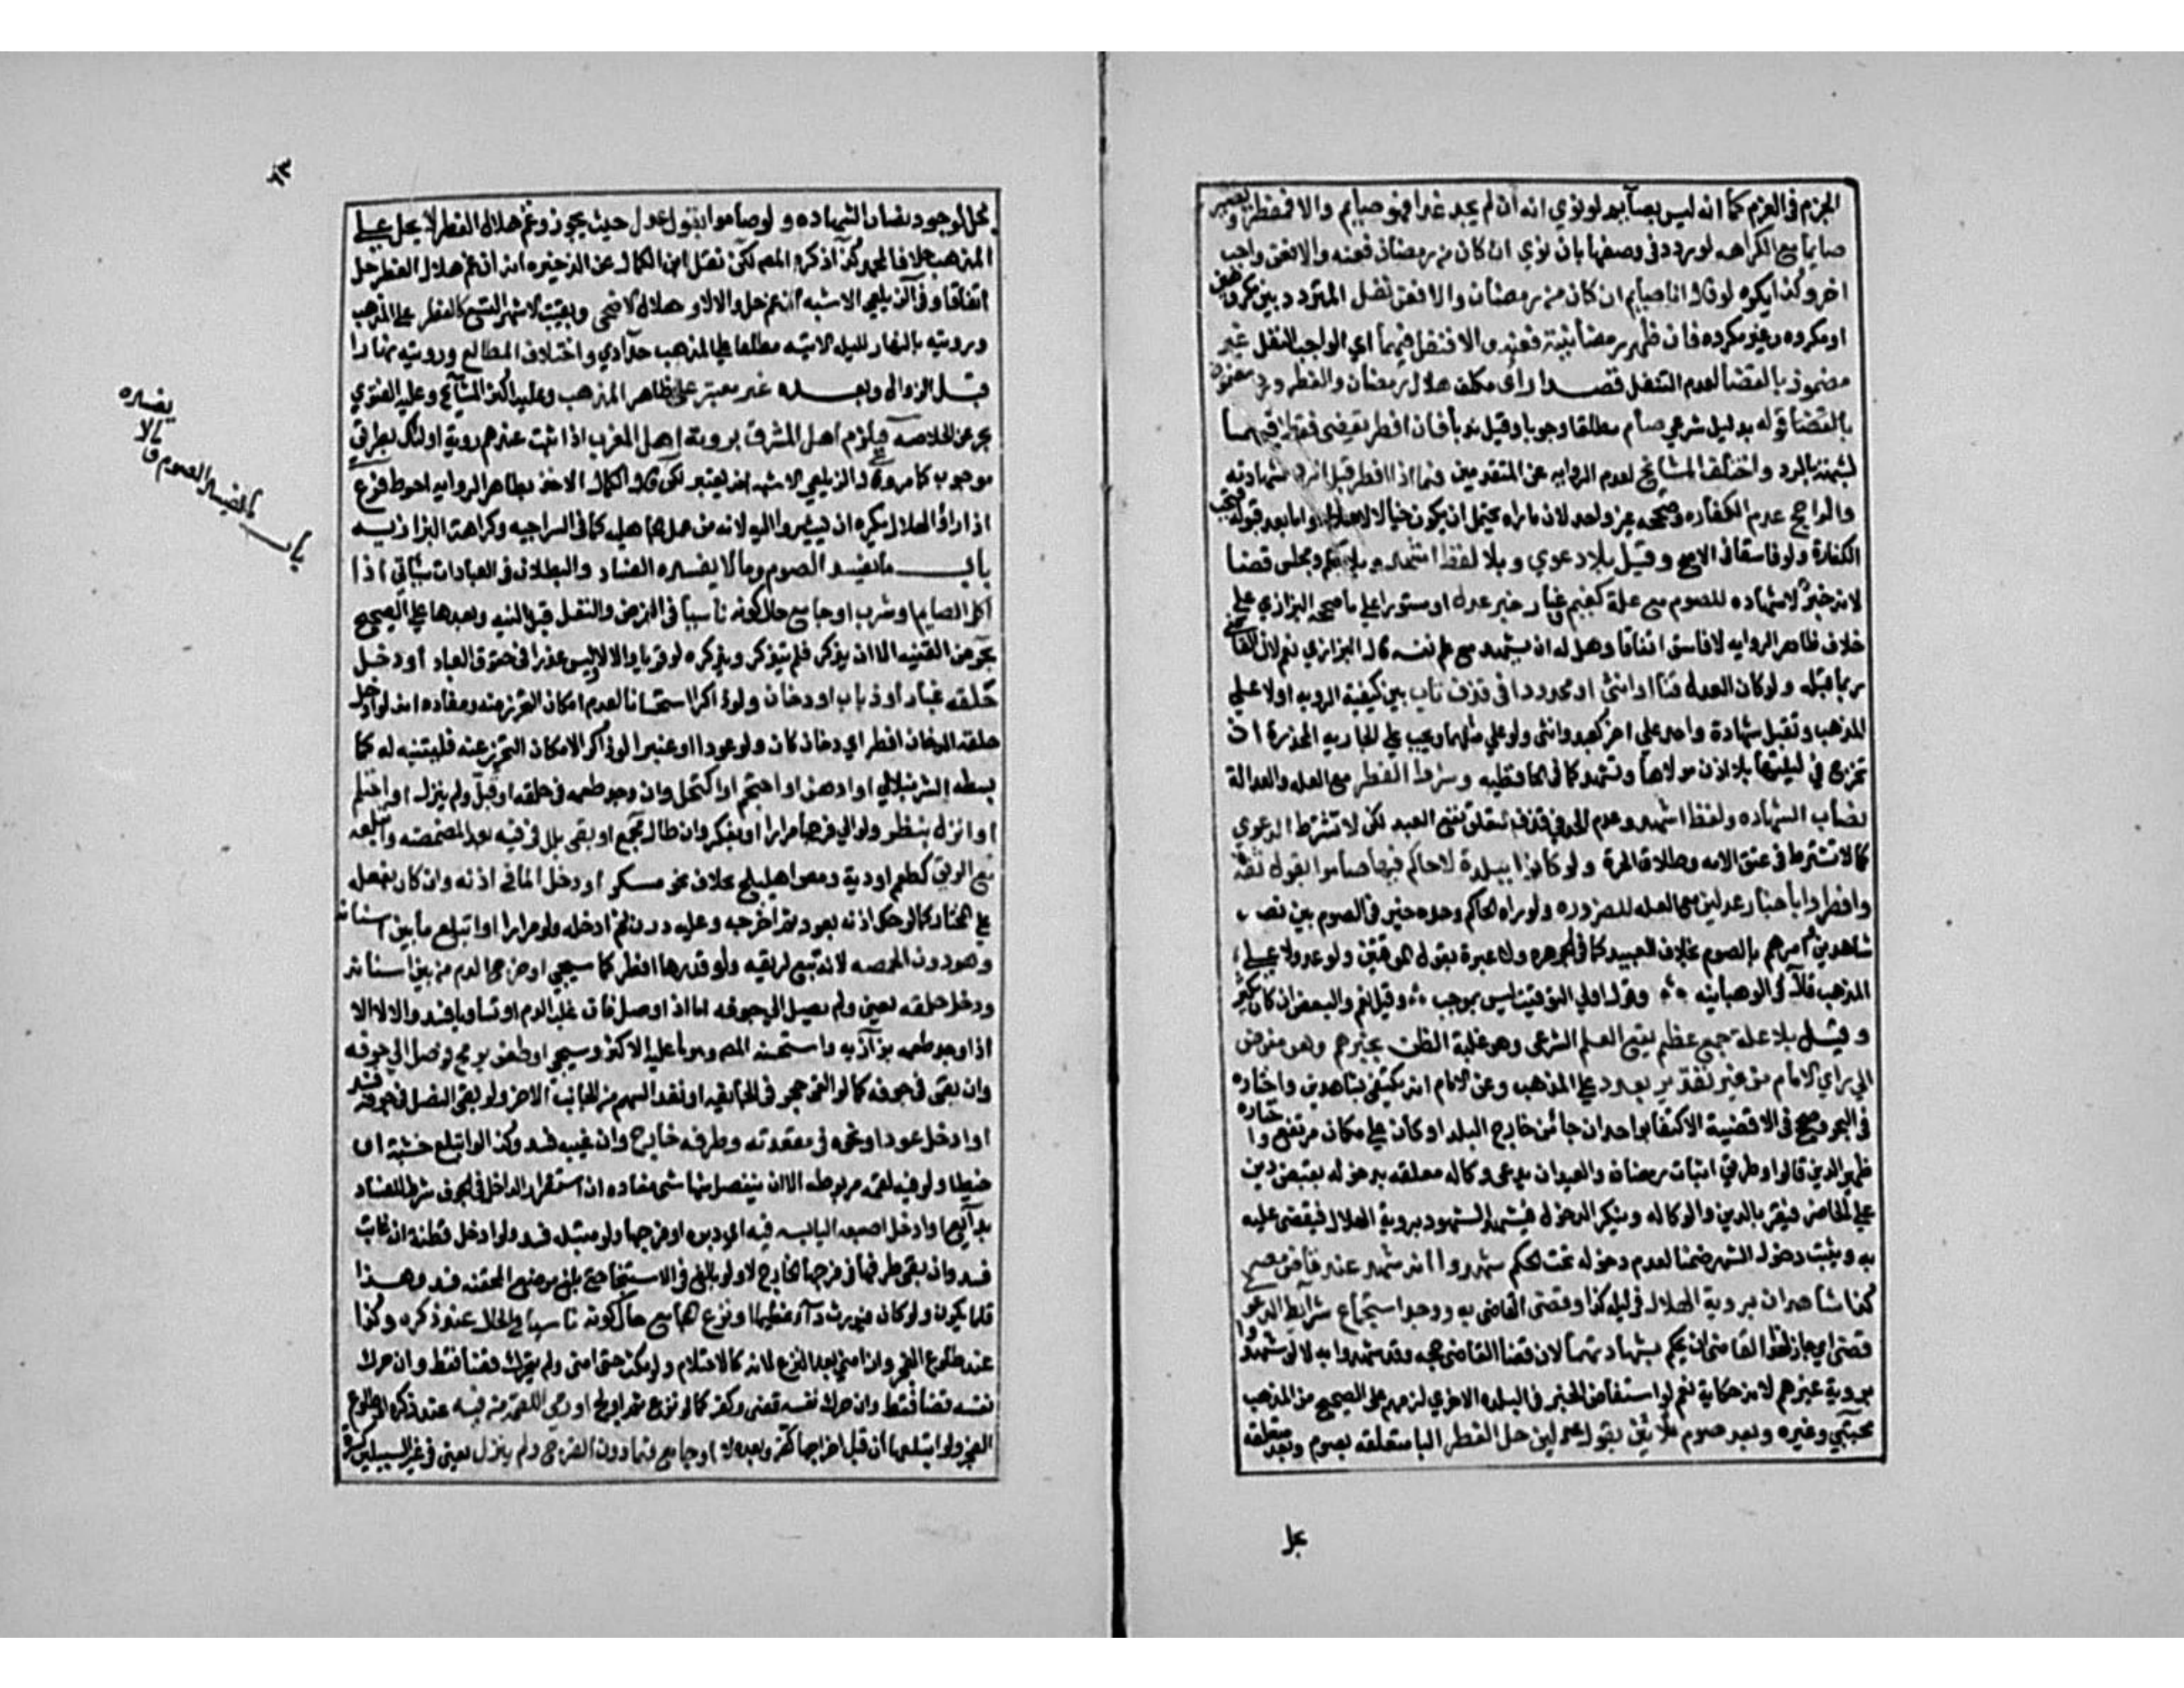 الجزم في العزم كما انه ليس بصائم لو نوي انه ان لم يجد غدا فهو صايم والا فمفطر ويصير
صايما مع الكراهه لو ردد في وصفها بان نوي ان كان من رمضان فعنه والا فعن واجب
اخر وكذا يكره لو قال انا صايم ان كان من رمضان والا فعن نفل المتردد بين مكروهين
او مكروه وغير مكروه فان ظهر رمضانيته فعنه والا فنفل فيهما اي الواجب النفل غير
مضمون بالقضا لعدم التنفل قصدا راي مكلف هلال رمضان والفطر ورد
بالقضا قوله بدليل شرعي صام مطلقا وجوبا وقيل ندبا فان افطر يقضي فقط فيهما
لشبهة الرد واختلف المشايخ لعدم الروايه عن المتقدمين فيما اذا افطر قبل الرد لشهادته
والراجح عدم الكفاره وصححه غير واحد لان ما راه يحتمل ان يكون خيالا لا هلالا واما بعد قبوله فتجب
الكفارة ولو فاسقا في الاصح وقيل بلا دعوي وبلا لفظ اشهد وبلا حكم ومجلس قضا
لانه خبر لا شهاده للصوم مع علة كغيم وغبار خبر عدل او مستور علي ما صححه البزازي علي
خلاف ظاهر الروايه لا فاسق اتفاقا وهل له ان يشهد مع علم فسقه قال البزازي نعم لان القاضي
ربما قبله ولو كان العدل قنا او انثي او محدودا في قذف تاب بين كيفية الرويه او لا علي
المذهب وتقبل شهادة واحد علي اخر كعبد وانثي ولو علي مثلهما ويجب علي الجاريه المخدرة ان
تخرج في ليلتها بلا اذن مولاها وتشهد كما في الحافظيه وشرط الفطر مع العله والعدالة
نصاب الشهاده ولفظ اشهد وعدم الحد في قذف لتعلق نفع العبد لكن لا تشترط الدعوي
كما لا تشترط في عتق الامه وطلاق الحرة ولو كانوا ببلدة لا حاكم فيها صاموا بقول ثقة
وافطروا باخبار عدلين مع العله للضروره ولو راه الحاكم وحده خير في الصوم بين نصب
شاهدين امرهم بالصوم بخلاف العيد كما في الجوهره ولا عبرة بقول الموقتين ولو عدولا علي
المذهب قال في الوهبانيه وقول اولي التوقيت ليس بموجب وقيل نعم والبعض ان كان يكثر
وقيل بلا علة جمع عظيم يقع العلم الشرعي وهو غلبة الظن بخبرهم وهو مفوض
الي راي الامام من غير تقدير بعدد علي المذهب وعن الامام انه يكتفي بشاهدين واختاره
في البحر وصحح في الاقضية الاكتفا بواحد ان جا من خارج البلد او كان علي مكان مرتفع واختاره
ظهير الدين قالوا وطريق اثبات رمضان والعيد ان يدعي وكاله معلقه بدخوله بقبض دين
علي الحاضر فيقر بالدين والوكاله وينكر الدخول فيشهد الشهود بروية الهلال فيقضي عليه
به ويثبت دخول الشهر ضمنا لعدم دخوله تحت الحكم شهدوا انه شهد عند قاضي مصر
كذا شاهدان بروية الهلال في ليلة كذا وقضي القاضي به ووجد استجماع شرايط الدعوي
قضي اي جاز لهذا القاضي ان يحكم بشهادتهما لان قضا القاضي حجه وقد شهدوا به لا لو شهدوا
بروية غيرهم لانه حكاية نعم لو استفاض الخبر في البلده الاخري لزمهم علي الصحيح من المذهب
مجتبي وغيره وبعد صوم ثلاثين بقول عدلين حل الفطر البا متعلقه بصوم وبعد متعلقه
بحل
٦٣
بحل لوجود نصاب الشهاده ولو صاموا بقول عدل حيث يجوز وغم هلال الفطر لا يحل علي
المذهب خلافا لمحمد كذا ذكره المص لكن نقل ابن الكمال عن الذخيره انه ان غم هلال الفطر حل
اتفاقا وفي الزيلعي الاشبه ان غم حل والا لا وهلال الاضحي وبقيت الاشهر التسع كالفطر علي المذهب
ورويته بالنهار لليله الاتيه مطلقا علي المذهب حدادي واختلاف المطالع ورويته نهارا
قبل الزوال وبعده غير معتبر علي ظاهر المذهب وعليه اكثر المشايخ وعليه الفتوي
بحر عن الخلاصه فيلزم اهل المشرق بروية اهل المغرب اذا ثبت عندهم روية اولئك بطريق
موجب كما مر وقال الزيلعي الاشبه انه يعتبر لكن قال الكمال الاخذ بظاهر الروايه احوط فرع
اذا راوا الهلال يكره ان يشيروا اليه لانه من عمل الجاهليه كما في السراجيه وكراهة البزازيه
باب ما يفسد الصوم وما لا يفسده الفساد والبطلان في العبادات سيان اذا
اكل الصايم او شرب او جامع حال كونه ناسيا في الفرض والنفل قبل النيه وبعدها علي الصحيح
بحر عن القنيه الا ان يذكر فلم يتذكر ويذكره لو قويا والا لا وليس عذرا في حقوق العباد او دخل
حلقه غبار او ذباب او دخان ولو ذاكرا استحسانا لعدم امكان التحرز عنه ومفاده انه لو ادخل
حلقه الدخان افطر اي دخان كان ولو عودا او عنبرا لو ذاكرا لامكان التحرز عنه فليتنبه له كما
بسطه الشرنبلالي او ادهن او احتجم او اكتحل وان وجد طعمه في حلقه او قبل ولم ينزل او احتلم
او انزل بنظر ولو الي فرجها مرارا او بفكر وان طال مجمع او بقي بلل في فيه بعد المضمضه وابتلعه
مع الريق كطعم ادوية ومص اهليلج بخلاف نحو سكر او دخل الما في اذنه وان كان بفعله
علي المختار كما لو حك اذنه بعود ثم اخرجه وعليه درن ثم ادخله ولو مرارا او ابتلع ما بين اسنانه
وهو دون الحمصه لانه تبع لريقه ولو قدرها افطر كما سيجي او خرج الدم من بين اسنانه
ودخل حلقه يعني ولم يصل الي جوفه اما اذا وصل فان غلب الدم او تساويا فسد والا لا الا
اذا وجد طعمه بزازيه واستحسنه المص وهو ما عليه الاكثر وسيجي او طعن برمح فوصل الي جوفه
وان بقي في جوفه كما لو القي حجر في الجايفه او نفذ السهم من الجانب الاخر ولو بقي النصل في جوفه فسد
او ادخل عودا ونحوه في مقعدته وطرفه خارج وان غيبه فسد وكذا لو ابتلع خشبة او
خيطا ولو فيه لقمه مربوطه الا ان ينفصل منها شي مفاده ان استقرار الداخل في الجوف شرط للفساد
بدايع او ادخل اصبعه اليابسه فيه اي دبره او فرجها ولو مبتله فسد ولو ادخل قطنة ان غابت
فسد وان بقي طرفها في فرجها الخارج لا ولو بالغ في الاستنجا حتي بلغ موضع المحقنه فسد وهذا
قلما يكون ولو كان فيورث داء عظيما او نزع المجامع حال كونه ناسيا في الحال عند ذكره وكذا
عند طلوع الفجر وان امني بعد النزع لانه كالاحتلام ولو مكث حتي امني ولم يتحرك قضا فقط وان حرك
نفسه قضا فقط وان حرك نفسه قضي وكفر كما لو نزع ثم اولج او رمي اللقمه من فيه عند ذكره او طلوع
الفجر ولو ابتلعها ان قبل اخراجها كفر وبعده لا او جامع فيما دون الفرج ولم ينزل يعني في غير السبيلين
باب
ما يفسد الصوم وما لا
يفسده